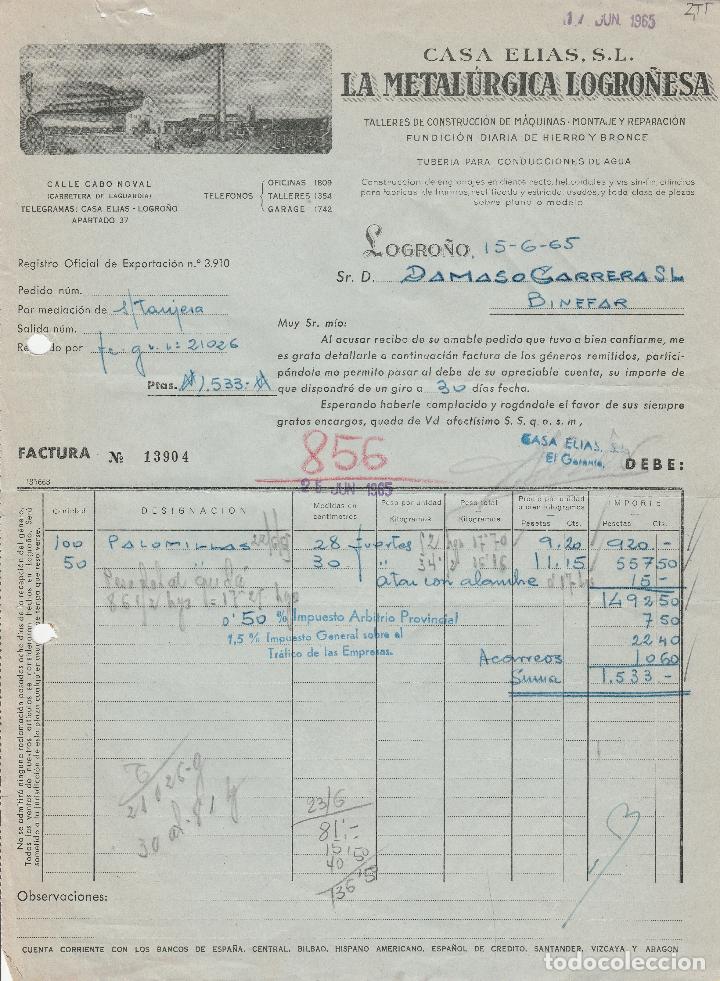 17 JUN. 1965
CASA ELIAS, S.L.
LA METALÚRGICA LOGROÑESA
TALLERES DE CONSTRUCCION DE MÁQUINAS - MONTAJE Y REPARACIÓN
FUNDICIÓN DIARIA DE HIERRO Y BRONCE
TUBERIA PARA CONDUCCIONES DE AGUA
Construccion de engranajes en dientes recto, helicoidales y vis sin-fin, cilindros
para fábricas de harinas, rectificado y estriado usados, y toda clase de piezas
sobre plano o modelo
CALLE CABO NOVAL
(CARRETERA DE LAGUARDIA)
TELEGRAMAS: CASA ELIAS - LOGROÑO
APARTADO 37
TELEFONOS
OFICINAS 1809
TALLERES 1354
GARAGE 1742
LOGROÑO, 15-6-65
Sr. D. DAMASO CARRERA SL
BINEFAR
Registro Oficial de Exportación n.º 3.910
Pedido núm.
Por mediación de s/tarjera
Salida núm.
Re do por fc. g. v. nº 21026
Ptas. 1.533.-
Muy Sr. mío:
Al acusar recibo de su amable pedido que tuvo a bien confiarme, me
es grato detallarle a continuación factura de los géneros remitidos, partici-
pándole me permito pasar al debe de su apreciable cuenta, su importe de
que dispondré de un giro a 30 días fecha.
Esperando haberle complacido y rogándole el favor de sus siempre
gratos encargos, queda de Vd. afectísimo S. S. q. e. s. m.,
CASA ELIAS, S.L.
El Gerente,
FACTURA Nº 13904
856
DEBE:
26 JUN 1965
131663
Cantidad
DESIGNACIÓN
Medidas en centímetros
Peso por unidad Kilogramos
Peso total Kilogramos
Precio por unidad o bien kilogramos Pesetas Cts.
IMPORTE Pesetas Cts.
100 PALOMILLAS 28 fuertes 9.20 920.-
50 30 " 11.15 557 50
atar con alambre 15.-
1492 50
0'50 % Impuesto Arbitrio Provincial 7 50
1,5 % Impuesto General sobre el
Tráfico de las Empresas. 22 40
Acarreos 10 60
Suma 1.533 -
21026-g
30 al-
23/6
81.-
15 50
40 50
136
No se admitirá ninguna reclamación pasados ocho días de la recepción del género.
Observaciones:
CUENTA CORRIENTE CON LOS BANCOS DE ESPAÑA, CENTRAL, BILBAO, HISPANO AMERICANO, ESPAÑOL DE CREDITO, SANTANDER, VIZCAYA Y ARAGON
todocoleccion